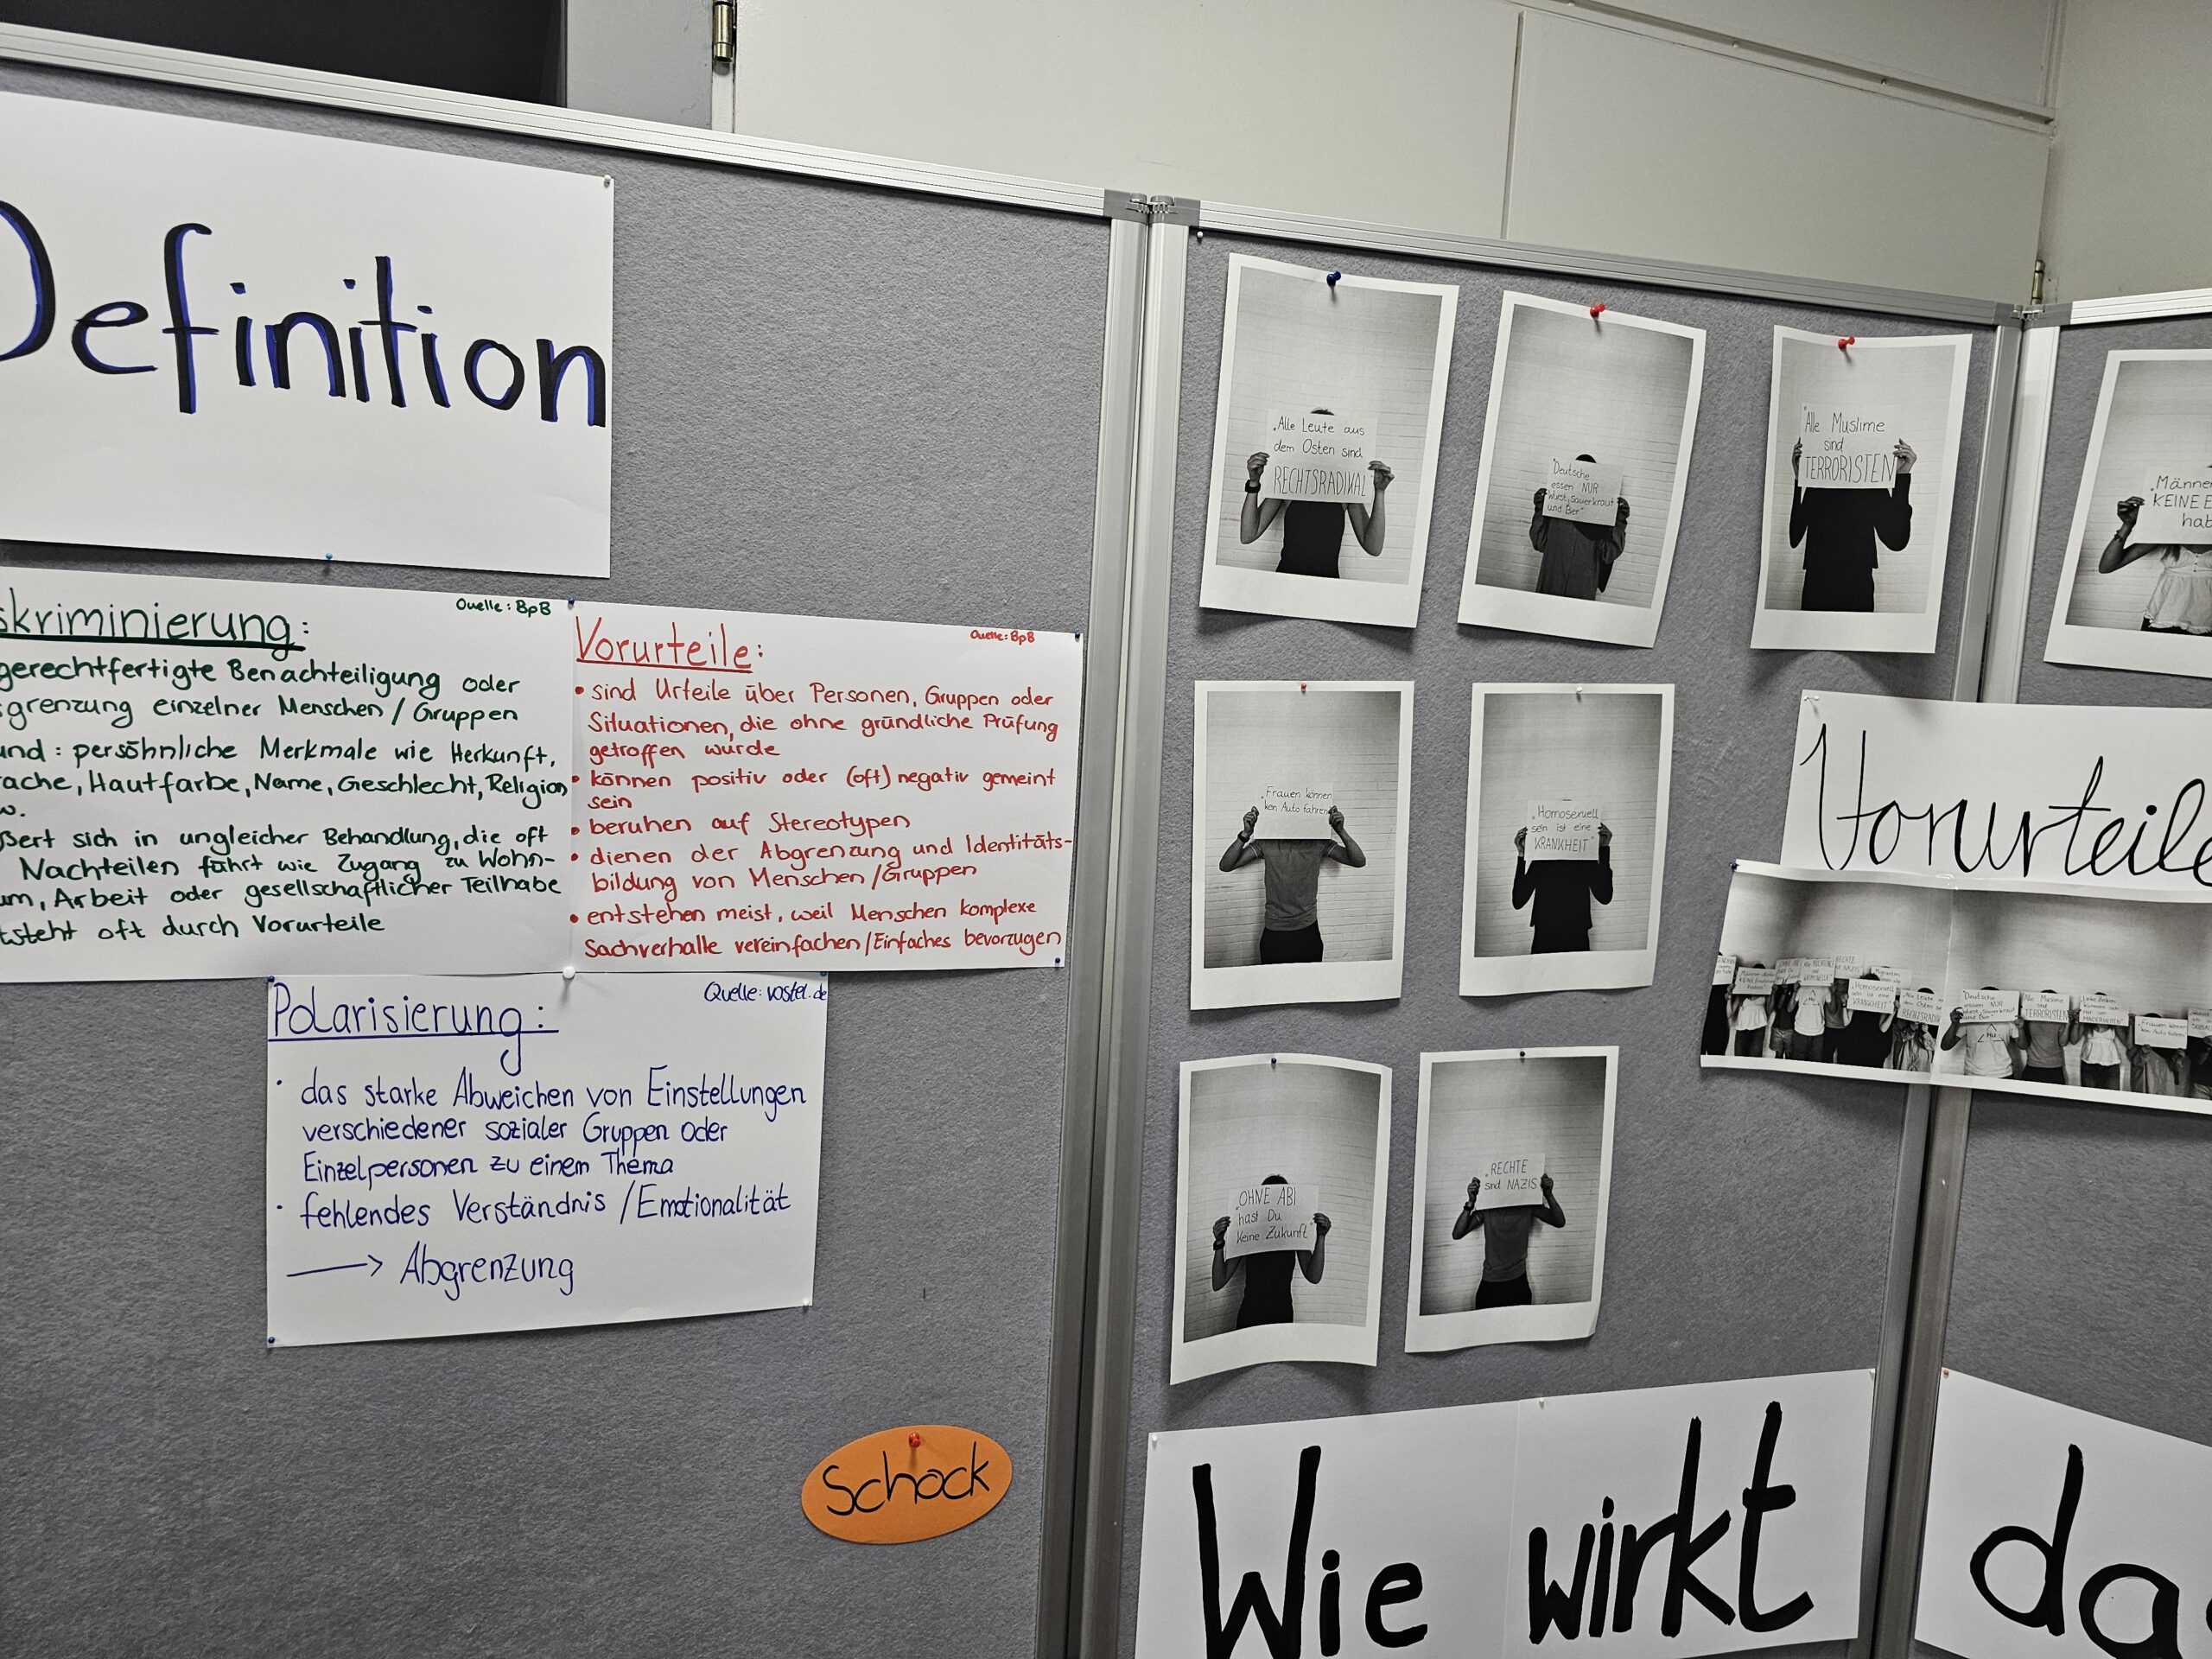 Definition
skriminierung:
Quelle: BpB
gerechtfertigte Benachteiligung oder
grenzung einzelner Menschen / Gruppen
und: persöhnliche Merkmale wie Herkunft,
ache, Hautfarbe, Name, Geschlecht, Religion
w.
ßert sich in ungleicher Behandlung, die oft
Nachteilen führt wie Zugang zu Wohn-
um, Arbeit oder gesellschaftlicher Teilhabe
tsteht oft durch Vorurteile
Vorurteile:
Quelle: BpB
• sind Urteile über Personen, Gruppen oder
Situationen, die ohne gründliche Prüfung
getroffen wurde
• können positiv oder (oft) negativ gemeint
sein
• beruhen auf Stereotypen
• dienen der Abgrenzung und Identitäts-
bildung von Menschen / Gruppen
• entstehen meist, weil Menschen komplexe
Sachverhalle vereinfachen / Einfaches bevorzugen
Polarisierung:
Quelle: vostel.de
· das starke Abweichen von Einstellungen
verschiedener sozialer Gruppen oder
Einzelpersonen zu einem Thema
· fehlendes Verständnis / Emotionalität
→ Abgrenzung
Schock
„Alle Leute aus
dem Osten sind
RECHTSRADIKAL"
"Deutsche
essen NUR
Wurst, Sauerkraut
und Bier"
"Alle Muslime
sind
TERRORISTEN"
„Männer
KEINE E
hab
„Frauen können
kein Auto fahren"
„Homosexuell
sein ist eine
KRANKHEIT"
„OHNE ABI
hast Du
keine Zukunft"
„RECHTE
sind NAZIS"
Vorurteile
"Deutsche
essen NUR
Wurst, Sauerkraut
und Bier"
Alle Muslime
sind
TERRORISTEN
„Frauen können
kein Auto fahren"
RECHTE
NAZIS
Homosexuell
sein ist eine
KRANKHEIT
Alle Leute
dem Osten
RECHTSRADIK
Wie wirkt da